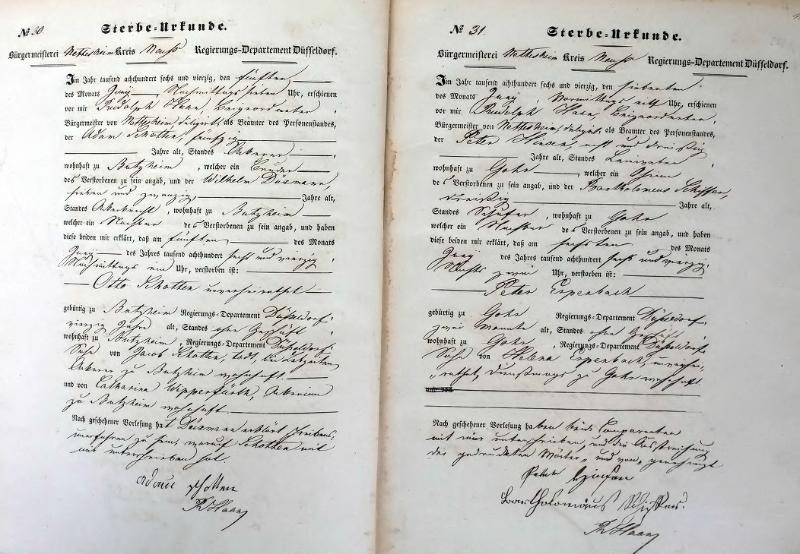 № 30. Sterbe-Urkunde.
Bürgermeisterei Nettesheim Kreis Neuß Regierungs-Departement Düsseldorf.
Im Jahr tausend achthundert sechs und vierzig, den fünften
des Monats Nachmittags Uhr, erschienen
vor mir Rudolph Beigeordneten
Bürgermeister von Nettesheim delegirt als Beamter des Personenstandes,
der Adam Schotten fünfzig
Jahre alt, Standes Ackerer
wohnhaft zu Butzheim, welcher ein Bruder
des Verstorbenen zu sein angab, und der Wilhelm
sieben und zwanzig Jahre alt,
Standes Ackerknecht, wohnhaft zu Butzheim
welcher ein Nachbar des Verstorbenen zu sein angab, und haben
diese beiden mir erklärt, daß am fünften des Monats
des Jahres tausend achthundert sechs und vierzig,
Nachmittags ein Uhr, verstorben ist:
Otto Schotten unverheirathet
gebürtig zu Butzheim Regierungs-Departement Düsseldorf,
vierzig Jahre alt, Standes ohne Geschäft
wohnhaft zu Butzheim, Regierungs-Departement Düsseldorf,
Sohn von Jacob Schotten, todt, bei Lebzeiten
Ackerer zu Butzheim wohnhaft
und von Catharina Wipperfürth, Ackerin
zu Butzheim wohnhaft
Nach geschehener Vorlesung hat erklärt Schreibens
unerfahren zu sein, worauf Schotten mit
mir unterschrieben hat.
Adam Schotten
№ 31. Sterbe-Urkunde.
Bürgermeisterei Nettesheim Kreis Neuß Regierungs-Departement Düsseldorf.
Im Jahr tausend achthundert sechs und vierzig, den siebenten
des Monats Vormittags elf Uhr, erschienen
vor mir Rudolph Beigeordneten
Bürgermeister von Nettesheim delegirt als Beamter des Personenstandes,
der Peter acht und dreißig
Jahre alt, Standes
wohnhaft zu Gohr, welcher ein Oheim
des Verstorbenen zu sein angab, und der Bartholomeus
dreißig Jahre alt,
Standes Schäfer, wohnhaft zu Gohr
welcher ein Nachbar des Verstorbenen zu sein angab, und haben
diese beiden mir erklärt, daß am sechsten des Monats
des Jahres tausend achthundert sechs und vierzig
Nachts zwei Uhr, verstorben ist:
Peter Espenbach
gebürtig zu Gohr Regierungs-Departement Düsseldorf,
zwei Monate alt, Standes ohne Geschäft
wohnhaft zu Gohr, Regierungs-Departement Düsseldorf,
Sohn von Helena Espenbach, unverhei-
rathet, Dienstmagd zu Gohr wohnhaft
und von
Nach geschehener Vorlesung haben beide Comparenten
mit mir unterschrieben, und die Ausstreichung
der gedruckten Wörter „und von“ genehmigt
Peter
Bartholomäus